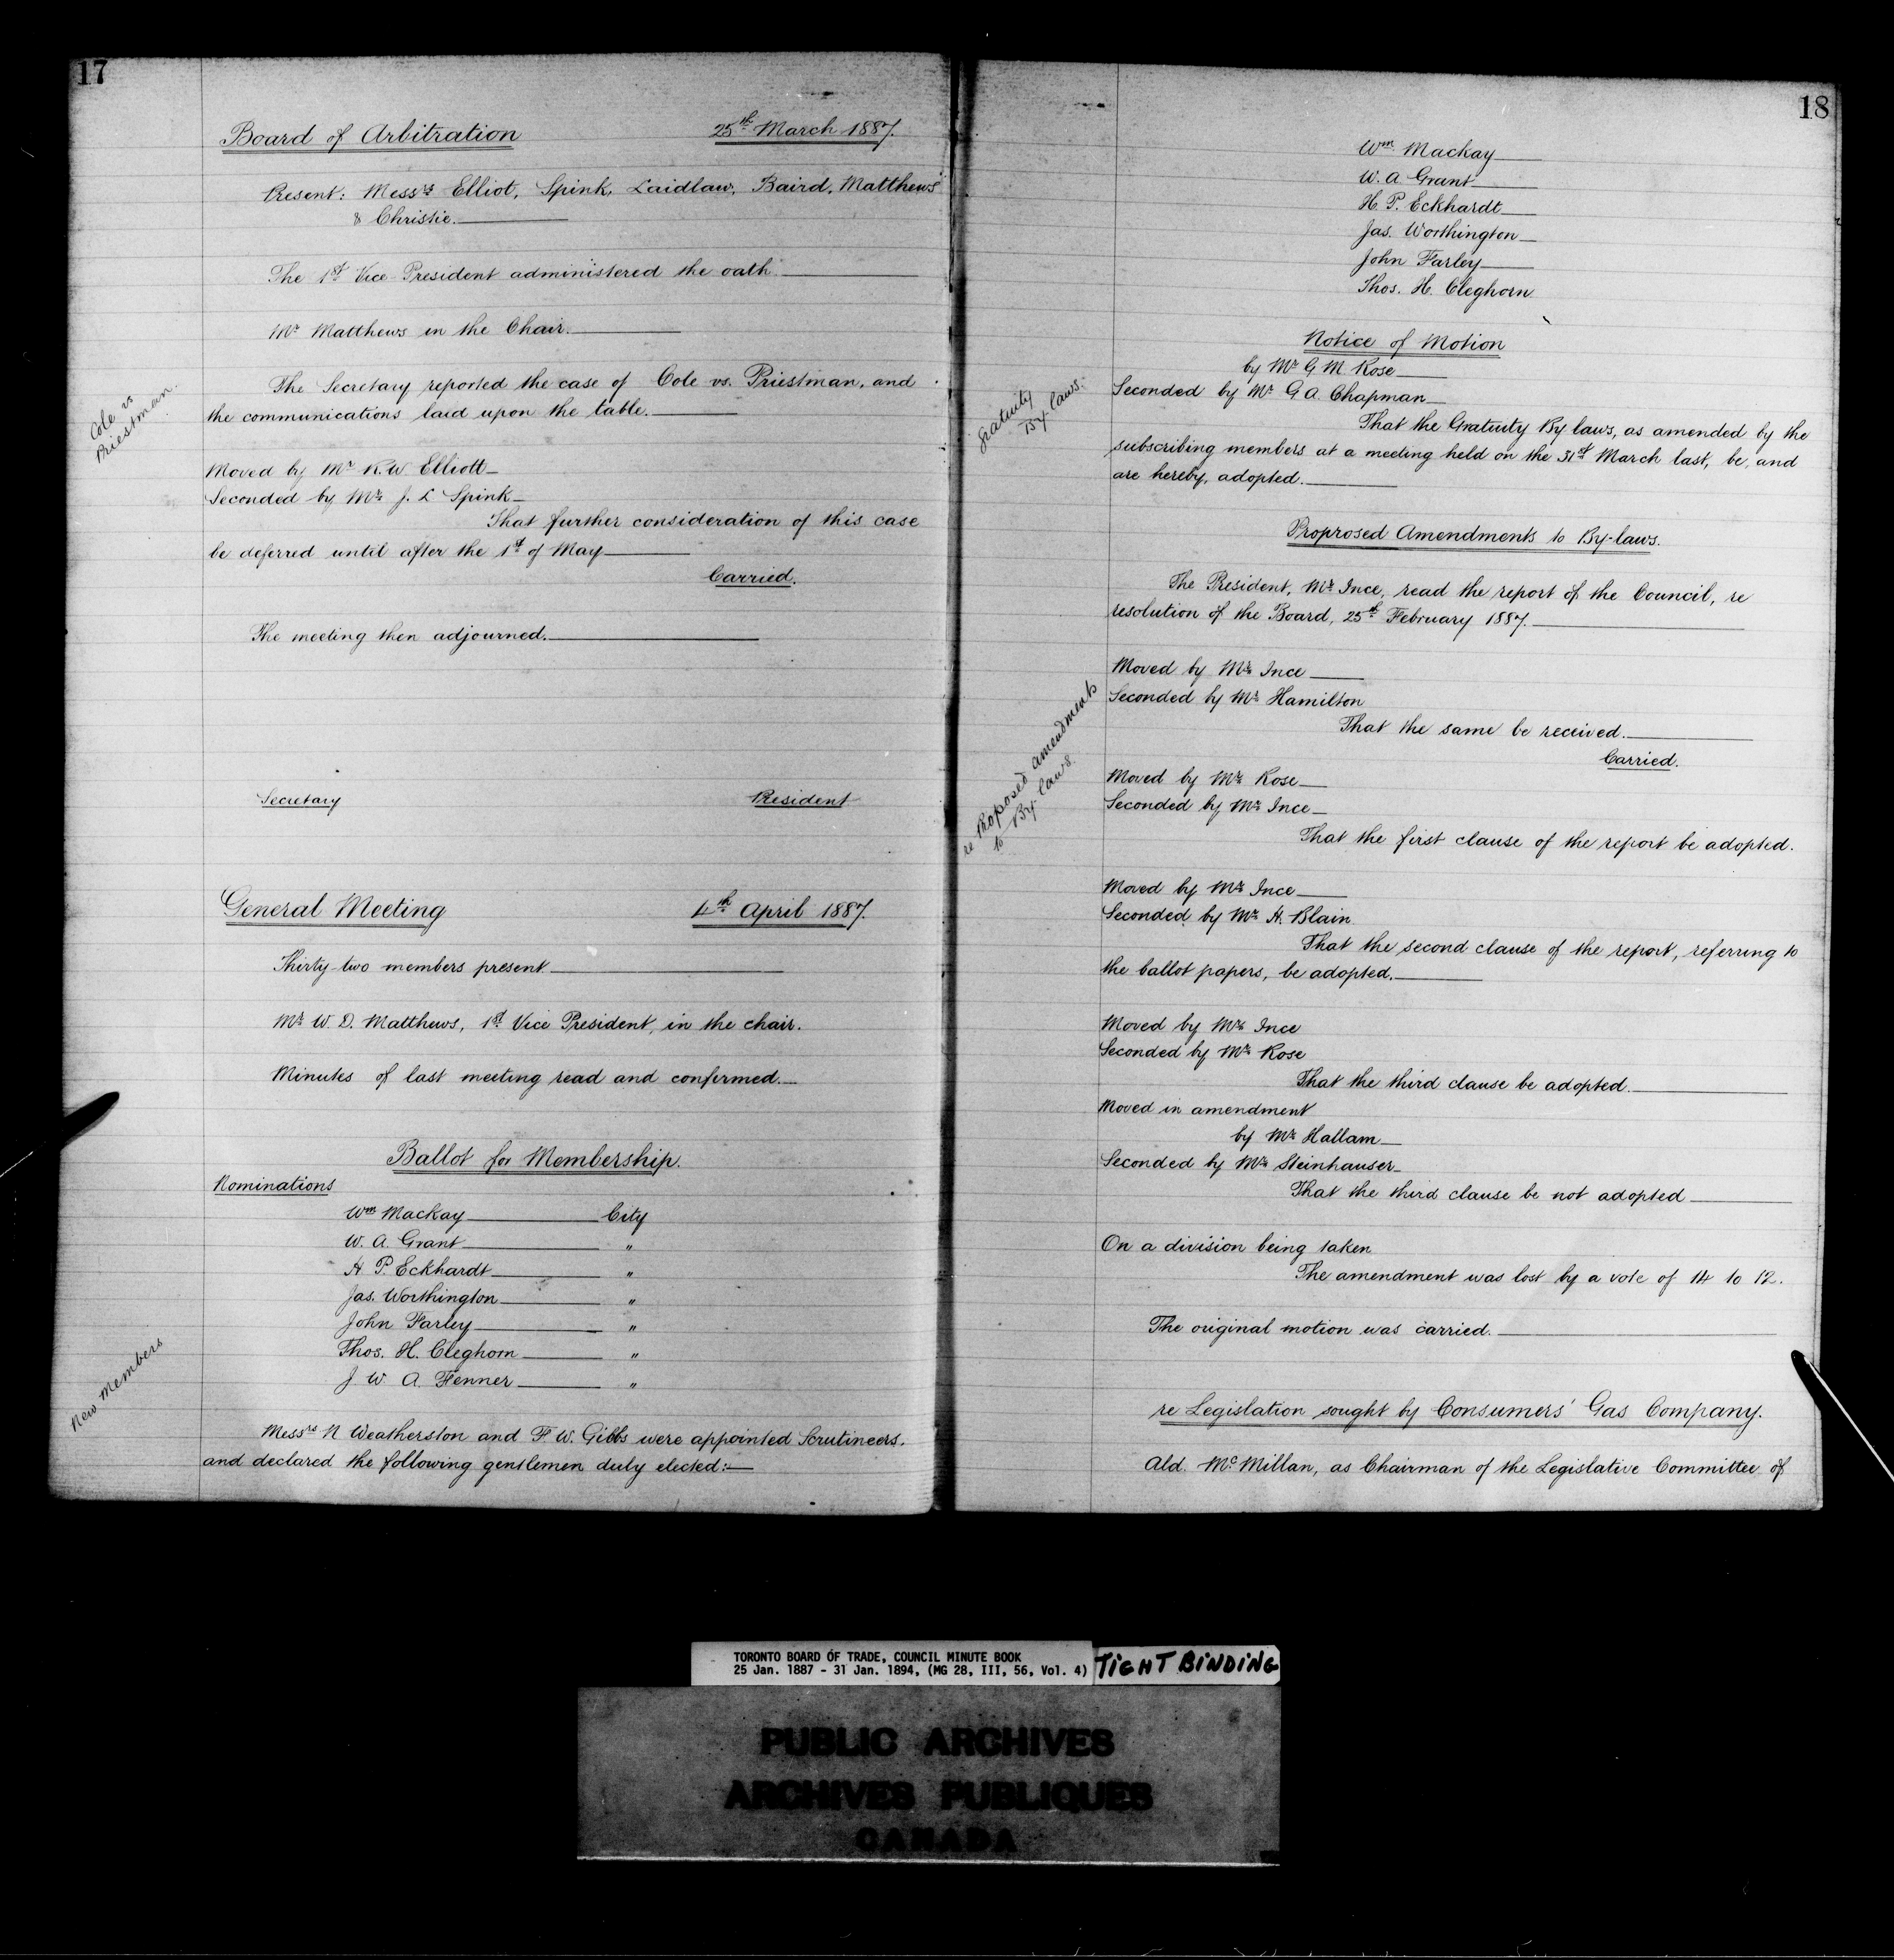 17
Board of Arbitration 25th March 1887.
Present: Messrs Elliot, Spink, Laidlaw, Baird, Matthews
& Christie.
The 1st Vice President administered the oath.
Mr Matthews in the Chair.
Cole vs
Priestman.
The Secretary reported the case of Cole vs. Priestman, and
the communications laid upon the table.
Moved by Mr R.W. Elliott
Seconded by Mr J. L Spink
That further consideration of this case
be deferred until after the 1st of May
Carried.
The meeting then adjourned.
Secretary President
General Meeting 4th April 1887.
Thirty-two members present
Mr W. D. Matthews, 1st Vice President, in the chair.
Minutes of last meeting read and confirmed.
Ballot for Membership.
Nominations
Wm Mackay City
W. A. Grant "
H. P. Eckhardt "
Jas. Worthington "
John Farley "
Thos. H. Cleghorn "
J. W. A. Fenner "
New Members
Messrs N Weatherston and F. W. Gibbs were appointed Scrutineers.
and declared the following gentlemen duly elected:—
18
Wm. Mackay
W. A. Grant
H. P. Eckhardt
Jas. Worthington
John Farley
Thos. H. Cleghorn
Notice of Motion
by Mr G. M. Rose
gratuity
By-laws.
Seconded by Mr G A. Chapman
That the Gratuity By laws, as amended by the
subscribing members at a meeting held on the 31st March last, be, and
are hereby, adopted.
Proprosed Amendments to By-laws.
The President, Mr Ince, read the report of the Council, re
resolution of the Board, 25th February 1887.
re Proposed amendments
to By-laws.
Moved by Mr Ince
Seconded by Mr Hamilton
That the same be received.
Carried.
Moved by Mr Rose
Seconded by Mr Ince
That the first clause of the report be adopted.
Moved by Mr Ince
Seconded by Mr H. Blain
That the second clause of the report, referring to
the ballot papers, be adopted.
Moved by Mr Ince
Seconded by Mr Rose
That the third clause be adopted.
Moved in amendment
by Mr Hallam
Seconded by Mr Steinhauser
That the third clause be not adopted
On a division being taken
The amendment was lost by a vote of 14 to 12.
The original motion was carried.
re Legislation sought by Consumers' Gas Company.
Ald. McMillan, as Chairman of the Legislative Committee of
TORONTO BOARD OF TRADE, COUNCIL MINUTE BOOK
25 Jan. 1887 - 31 Jan. 1894, (MG 28, III, 56, Vol. 4)
TIGHT BINDING
PUBLIC ARCHIVES
ARCHIVES PUBLIQUES
CANADA